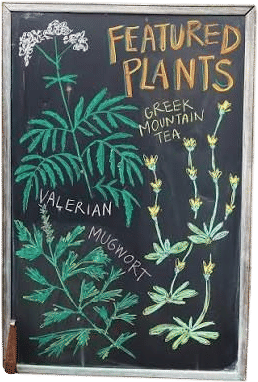 FEATURED
PLANTS
GREEK
MOUNTAIN
TEA
VALERIAN
MUGWORT